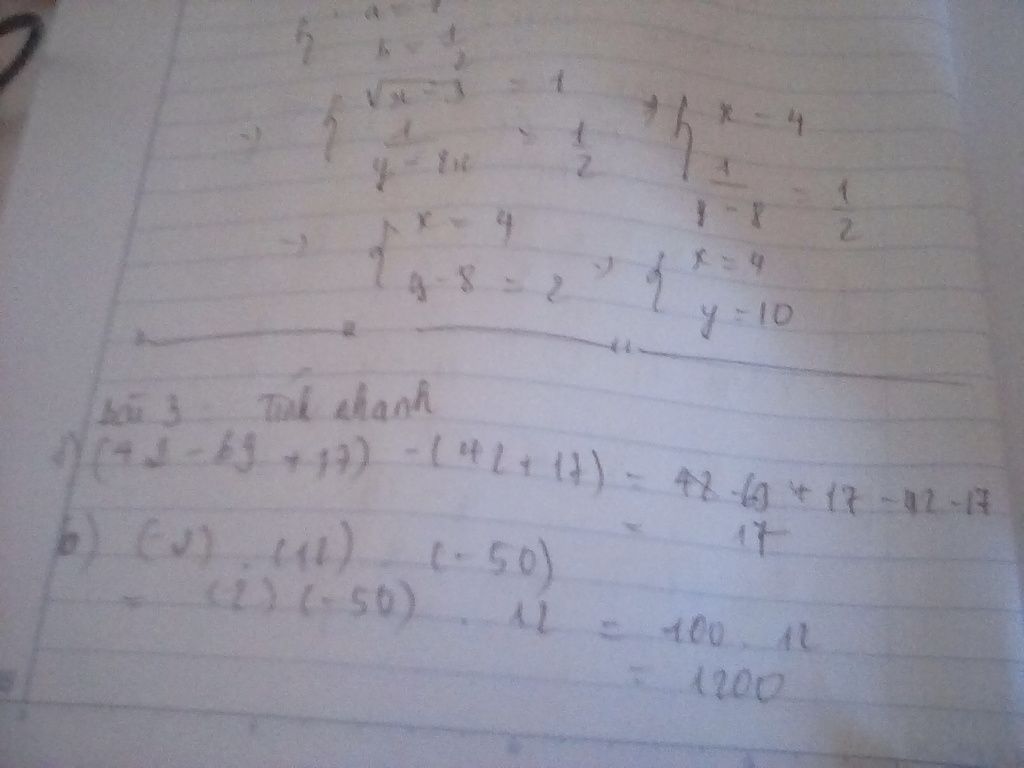 b = 1/2
=> { √x-3 = 1 => { x = 4
1/y-8 = 1/2 1/y-8 = 1/2
=> { x = 4 => { x = 4
y-8 = 2 y = 10
Bài 3 Tính nhanh
(42 - 69 + 17) - (42 + 17) = 42 - 69 + 17 - 42 - 17
= 17
b) (-2) . (12) . (-50)
= (2) (-50) . 12 = 100 . 12
= 1200